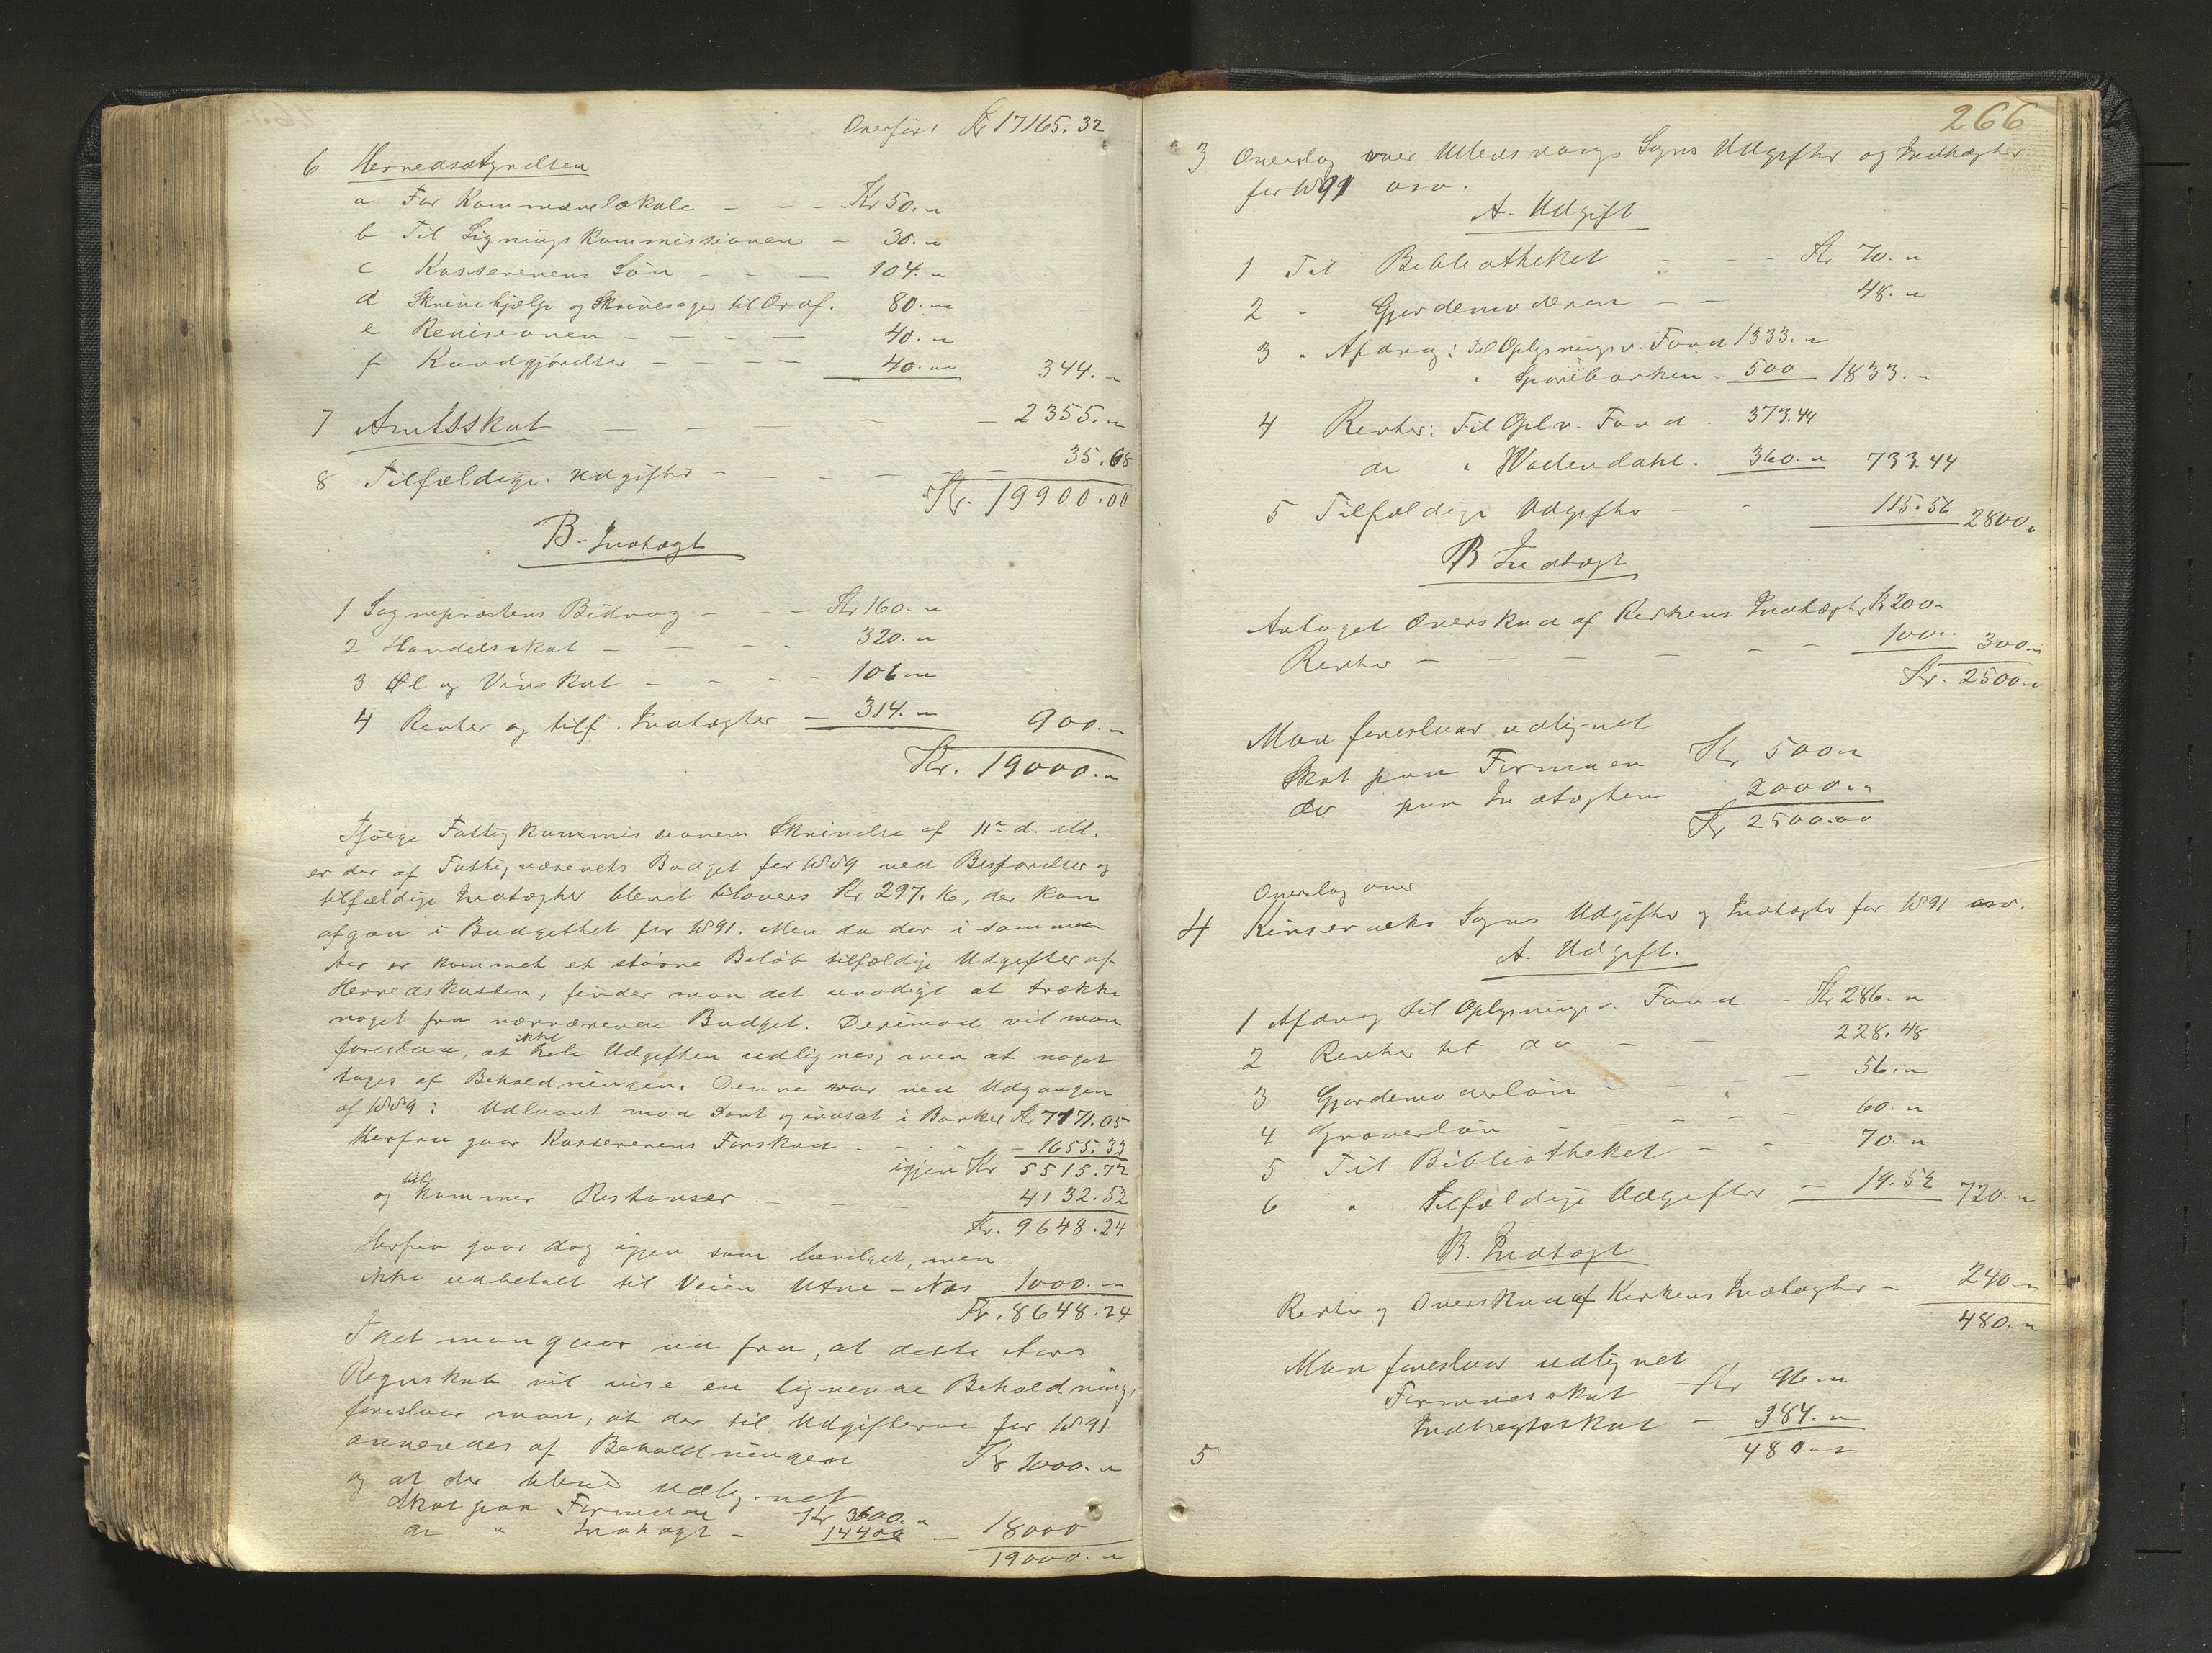 Overført Kr 17165.32
6 Herredsstyrelsen
a For Kommunelokale - - - Kr 50. "
b Til Ligningskommissionen - 30. "
c Kassererens Løn - - - 104. "
d Skrivehjælp og Skrivesager til Ordf. 80. "
e Revisionen - - - - 40. "
f Kundgjørelser - - - 40. " 344. "
7 Amtsskat - - - - - 2355. "
8 Tilfældige Udgifter - - - - 35.68
Kr. 19900.00
B. Indtægt
1 Sognepræstens Bidrag - - - Kr 160. "
2 Handelsskat - - - - 320. "
3 Øl og Vinskat - - - - 106 "
4 Renter og tilf. Indtægter - 314. " 900. "
Kr. 19000. "
Ifølge Fattigkommissionens Skrivelse af 11te d. M.
er der af Fattigvæsenets Budget for 1889 ved Besparelser og
tilfældige Indtægter blevet tilovers Kr 297.16, der kan
afgaa i Budgettet for 1891. Men da der i samme
Aar er kommet et større Beløb tilfældige Udgifter af
Herredskassen, finder man det unødigt at trække
noget fra nærværende Budget. Derimod vil man
foreslaa, at ikke hele Udgiften udlignes, men at noget
tages af Beholdningen. Denne var ved Udgangen
af 1889: Udlaant mod Pant og indsat i Banker Kr 7171.05
Herfra gaar Kassererens Forskud - - - 1655.33
igjen Kr 5515.72
og til kommer Restanser - - - 4132.52
Kr. 9648.24
Herfra gaar dog igjen som bevilget, men
ikke udbetalt til Veien Utne - Næs 1000. "
Kr. 8648.24
Idet man gaar ud fra, at dette Aars
Regnskab vil vise en lignende Beholdning,
foreslaar man, at der til Udgifterne for 1891
anvendes af Beholdningen Kr 1000. "
og at der blive udlignet
Skat paa Formuen Kr 3600. "
do " Indtægt - 14400 - 18000
19000. "
266
3 Overslag over Ullensvangs Sogns Udgifter og Indtægter
for 1891 osv.
A. Udgift
1 Til Bibliotheket - - - Kr 70. "
2 " Gjordemoderen - - 48. "
3 " Afdrag: til Oplysningsv. Fond 1333. "
" Sparebanken - 500 1833. "
4 Renter: Til Oplv. Fond. 373.44
do " Wallendahl. 360. " 733.44
5 Tilfældige Udgifter - - 115.56 2800 "
B Indtægt
Antaget Overskud af Kirkens Indtægter Kr 200 "
Renter - - - - - - 100 " 300 "
Kr. 2500. "
Man foreslaar udlignet
Skat paa Formuen Kr 500 "
do paa Indtægten 2000. "
Kr 2500.00
Overslag over
4 Kinserviks Sogns Udgifter og Indtægter for 1891 osv.
A. Udgift.
1 Afdrag til Oplysningsv. Fond - Kr 286. "
2 Renter til do - - 228.48
3 Gjordemoderløn - - - - 56. "
4 Graverløn - - - - 60. "
5 Til Bibliotheket - - - 70. "
6 " tilfældige Udgifter - 19.52 720. "
B. Indtægt
Renter og Overskud af Kirkens Indtægter - 240. "
480. "
Man foreslaar udlignet
Formuesskat Kr 96. "
Indtægtsskat - 384. "
480 "
5